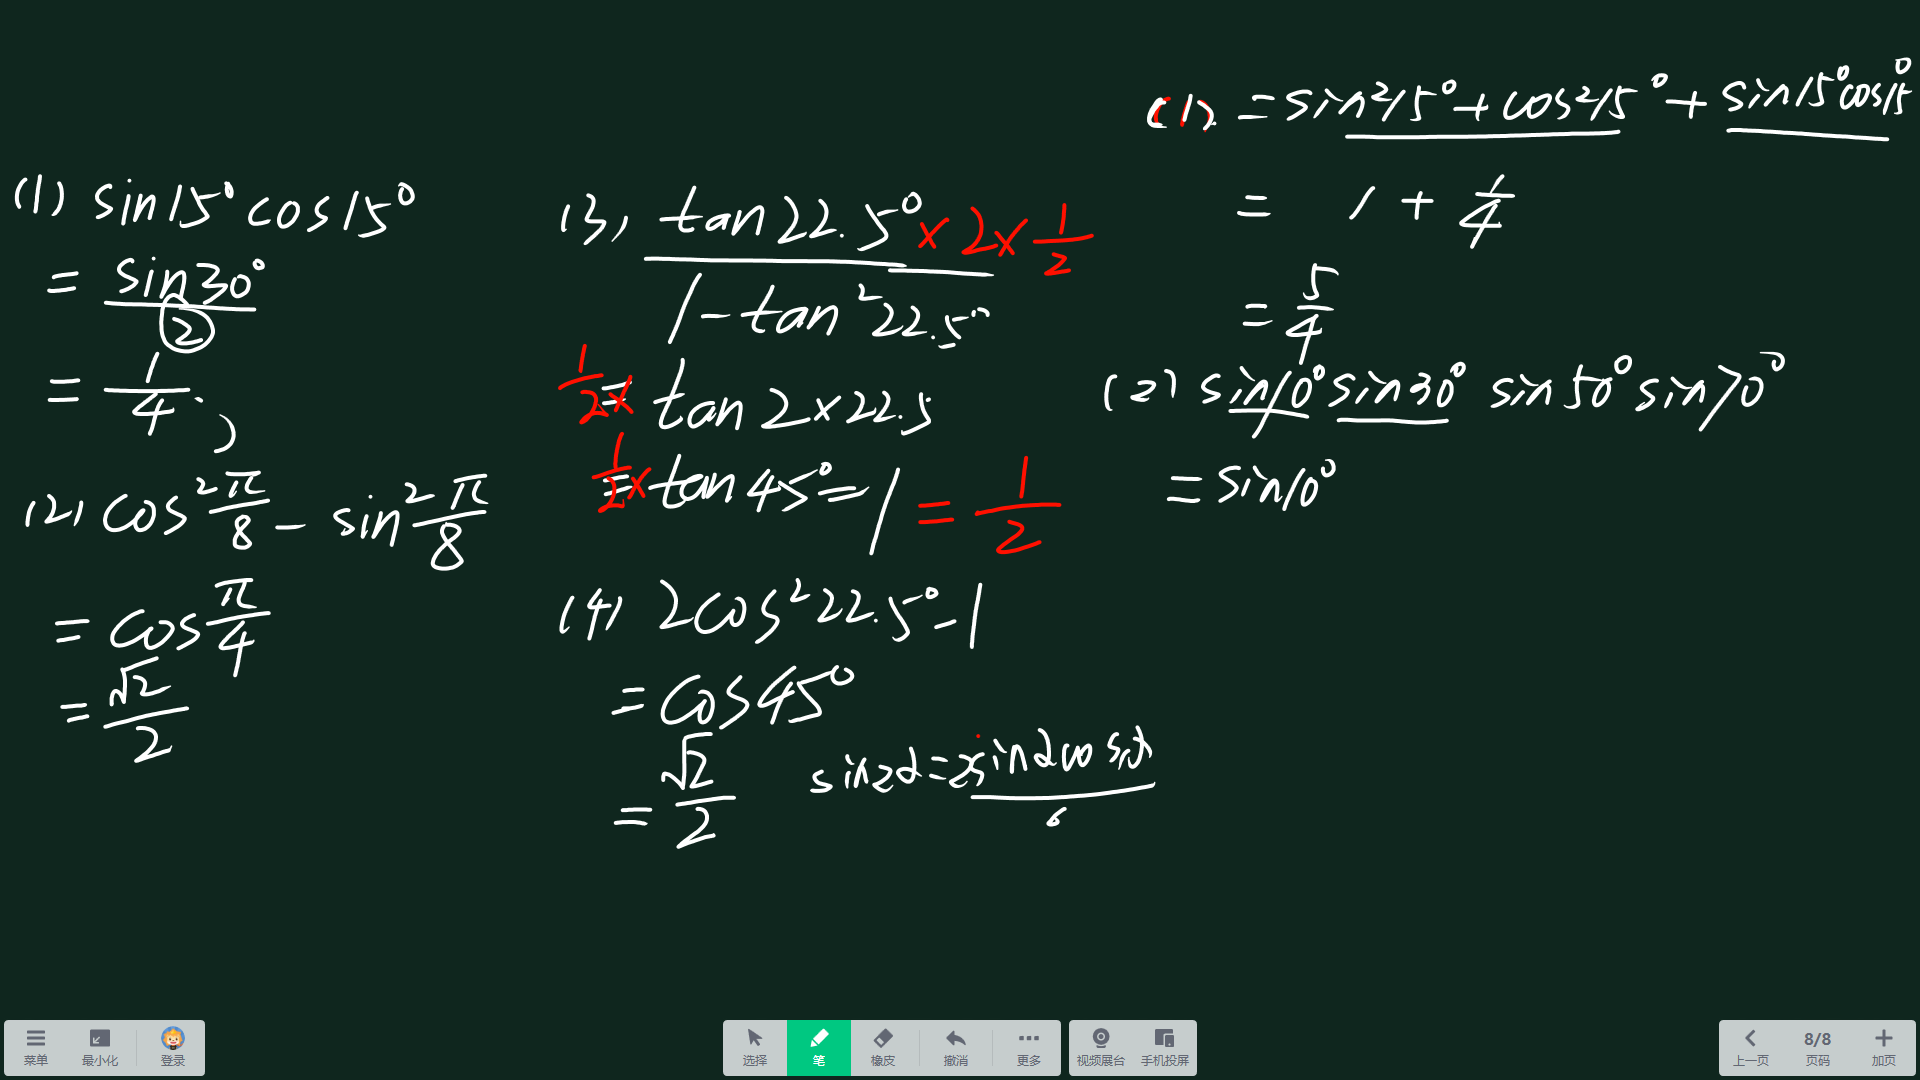 (1) sin15°cos15°
= sin30°/2
= 1/4.
(2) cos²π/8 - sin²π/8
= cosπ/4
= √2/2
(3) tan22.5° × 2 × 1/2
1 - tan²22.5°
1/2 × = tan2×22.5
1/2 × = tan45° = 1 = 1/2
(4) 2cos²22.5° - 1
= cos45°
= √2/2
sin2α = 2sinαcosα
(1). = sin²15° + cos²15° + sin15°cos15°
= 1 + 1/4
= 5/4
(2) sin10°sin30° sin50°sin70°
= sin10°
菜单 最小化 登录
选择 笔 橡皮 撤消 更多
视频展台 手机投屏
上一页 8/8 页码 加页